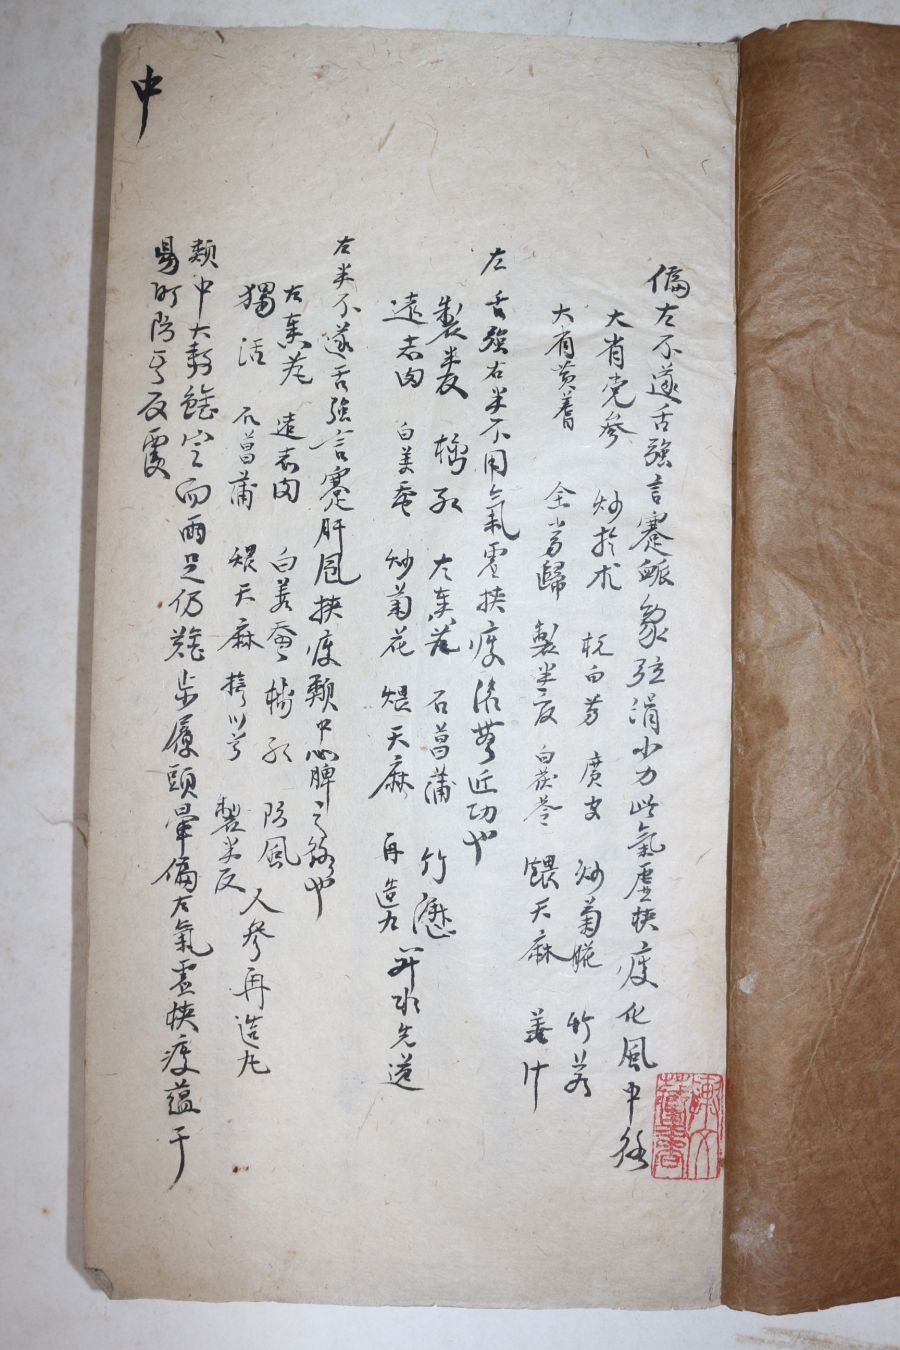 偏左不遂舌強言蹇脈象弦涓小力此氣虛挾痰化風中絡
大有党參 炒於朮 杭白芍 廣皮 炒菊花 竹茹
大有黃耆 全當歸 製半夏 白茯苓 煨天麻 姜汁
左舌強右半不用氣虛挾痰 近功也
製半夏 橘紅 左秦艽 石菖蒲 竹瀝
遠志肉 白姜蚕 炒菊花 煨天麻 再造丸 開水先送
左半不遂舌強言蹇肝風挾痰類中心脾之絡也
左秦艽 遠志肉 白姜蚕 橘紅 防風 人參再造丸
獨活 石菖蒲 煨天麻 撫川芎 製半夏
類中大勢雖定而兩足仍難步履頭暈偏左氣虛挾痰蘊于
陽明防其反覆
中